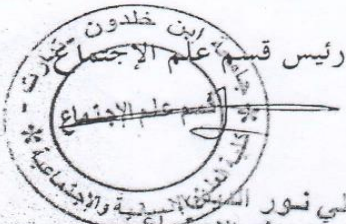 رئيس قسم علم الإجتماع
جامعة ابن خلدون - تيارت -
قسم علم الإجتماع
كلية العلوم الإنسانية والإجتماعية
نور الدين